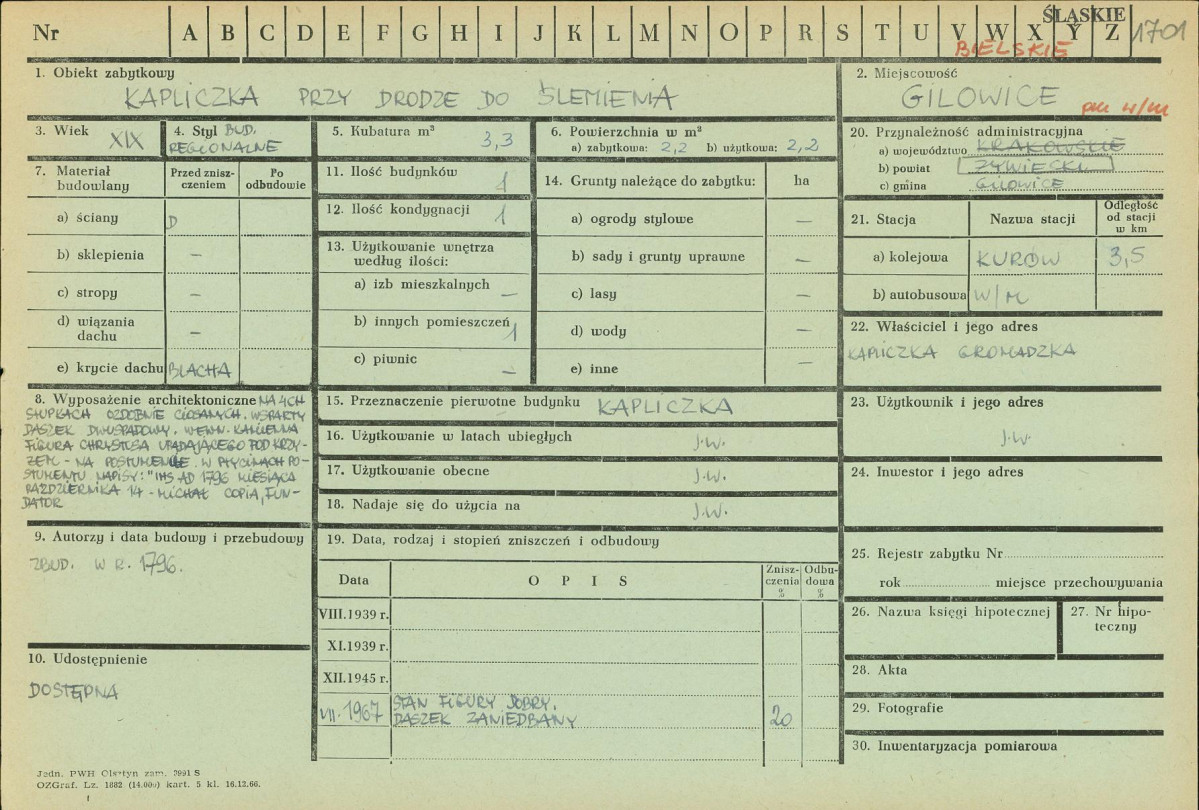 Nr A B C D E F G H I J K L M N O P R S T U V W X Y Z 1701
ŚLĄSKIE
BIELSKIE
1. Obiekt zabytkowy
KAPLICZKA PRZY DRODZE DO ŚLEMIENIA
2. Miejscowość
GILOWICE
3. Wiek XIX
4. Styl BUD.
REGIONALNE
5. Kubatura m³
3,3
6. Powierzchnia w m²
a) zabytkowa: 2,2 b) użytkowa: 2,2
20. Przynależność administracyjna
a) województwo KRAKOWSKIE
b) powiat ŻYWIECKI
c) gmina GILOWICE
7. Materiał budowlany
Przed zniszczeniem
Po odbudowie
a) ściany D
b) sklepienia –
c) stropy –
d) wiązania dachu –
e) krycie dachu BLACHA
11. Ilość budynków 1
12. Ilość kondygnacji 1
13. Użytkowanie wnętrza
według ilości:
a) izb mieszkalnych –
b) innych pomieszczeń 1
c) piwnic –
14. Grunty należące do zabytku: ha
a) ogrody stylowe –
b) sady i grunty uprawne –
c) lasy –
d) wody –
e) inne –
21. Stacja Nazwa stacji Odległość od stacji w km
a) kolejowa KURÓW 3,5
b) autobusowa W/M
22. Właściciel i jego adres
KAPLICZKA GROMADZKA
8. Wyposażenie architektoniczne NA 4CH
SŁUPKACH OZDOBNIE CIOSANYCH. WSPARTY
DASZEK DWUSPADOWY. WEWN. KAMIENNA
FIGURA CHRYSTUSA UPADAJĄCEGO POD KRZY-
ŻEM - NA POSTUMENCIE. W PŁYCINACH PO-
STUMENTU NAPISY: "IHS AD 1796 MIESIĄCA
PAŹDZIERNIKA 14 - MICHAŁ COPIA, FUN-
DATOR
15. Przeznaczenie pierwotne budynku KAPLICZKA
16. Użytkowanie w latach ubiegłych J.W.
17. Użytkowanie obecne J.W.
18. Nadaje się do użycia na J.W.
23. Użytkownik i jego adres
J.W.
24. Inwestor i jego adres
9. Autorzy i data budowy i przebudowy
ZBUD. W R. 1796.
19. Data, rodzaj i stopień zniszczeń i odbudowy
Data OPIS Zniszczenia % Odbudowa %
VIII.1939 r.
XI.1939 r.
XII.1945 r.
VII.1967 STAN FIGURY DOBRY.
DASZEK ZANIEDBANY 20
25. Rejestr zabytku Nr
rok miejsce przechowywania
26. Nazwa księgi hipotecznej
27. Nr hipo-
teczny
10. Udostępnienie
DOSTĘPNA
28. Akta
29. Fotografie
30. Inwentaryzacja pomiarowa
Jedn. PWH Olsztyn zam. 3991 S
OZGraf. Lz. 1882 (14.000) kart. 5 kl. 16.12.66.